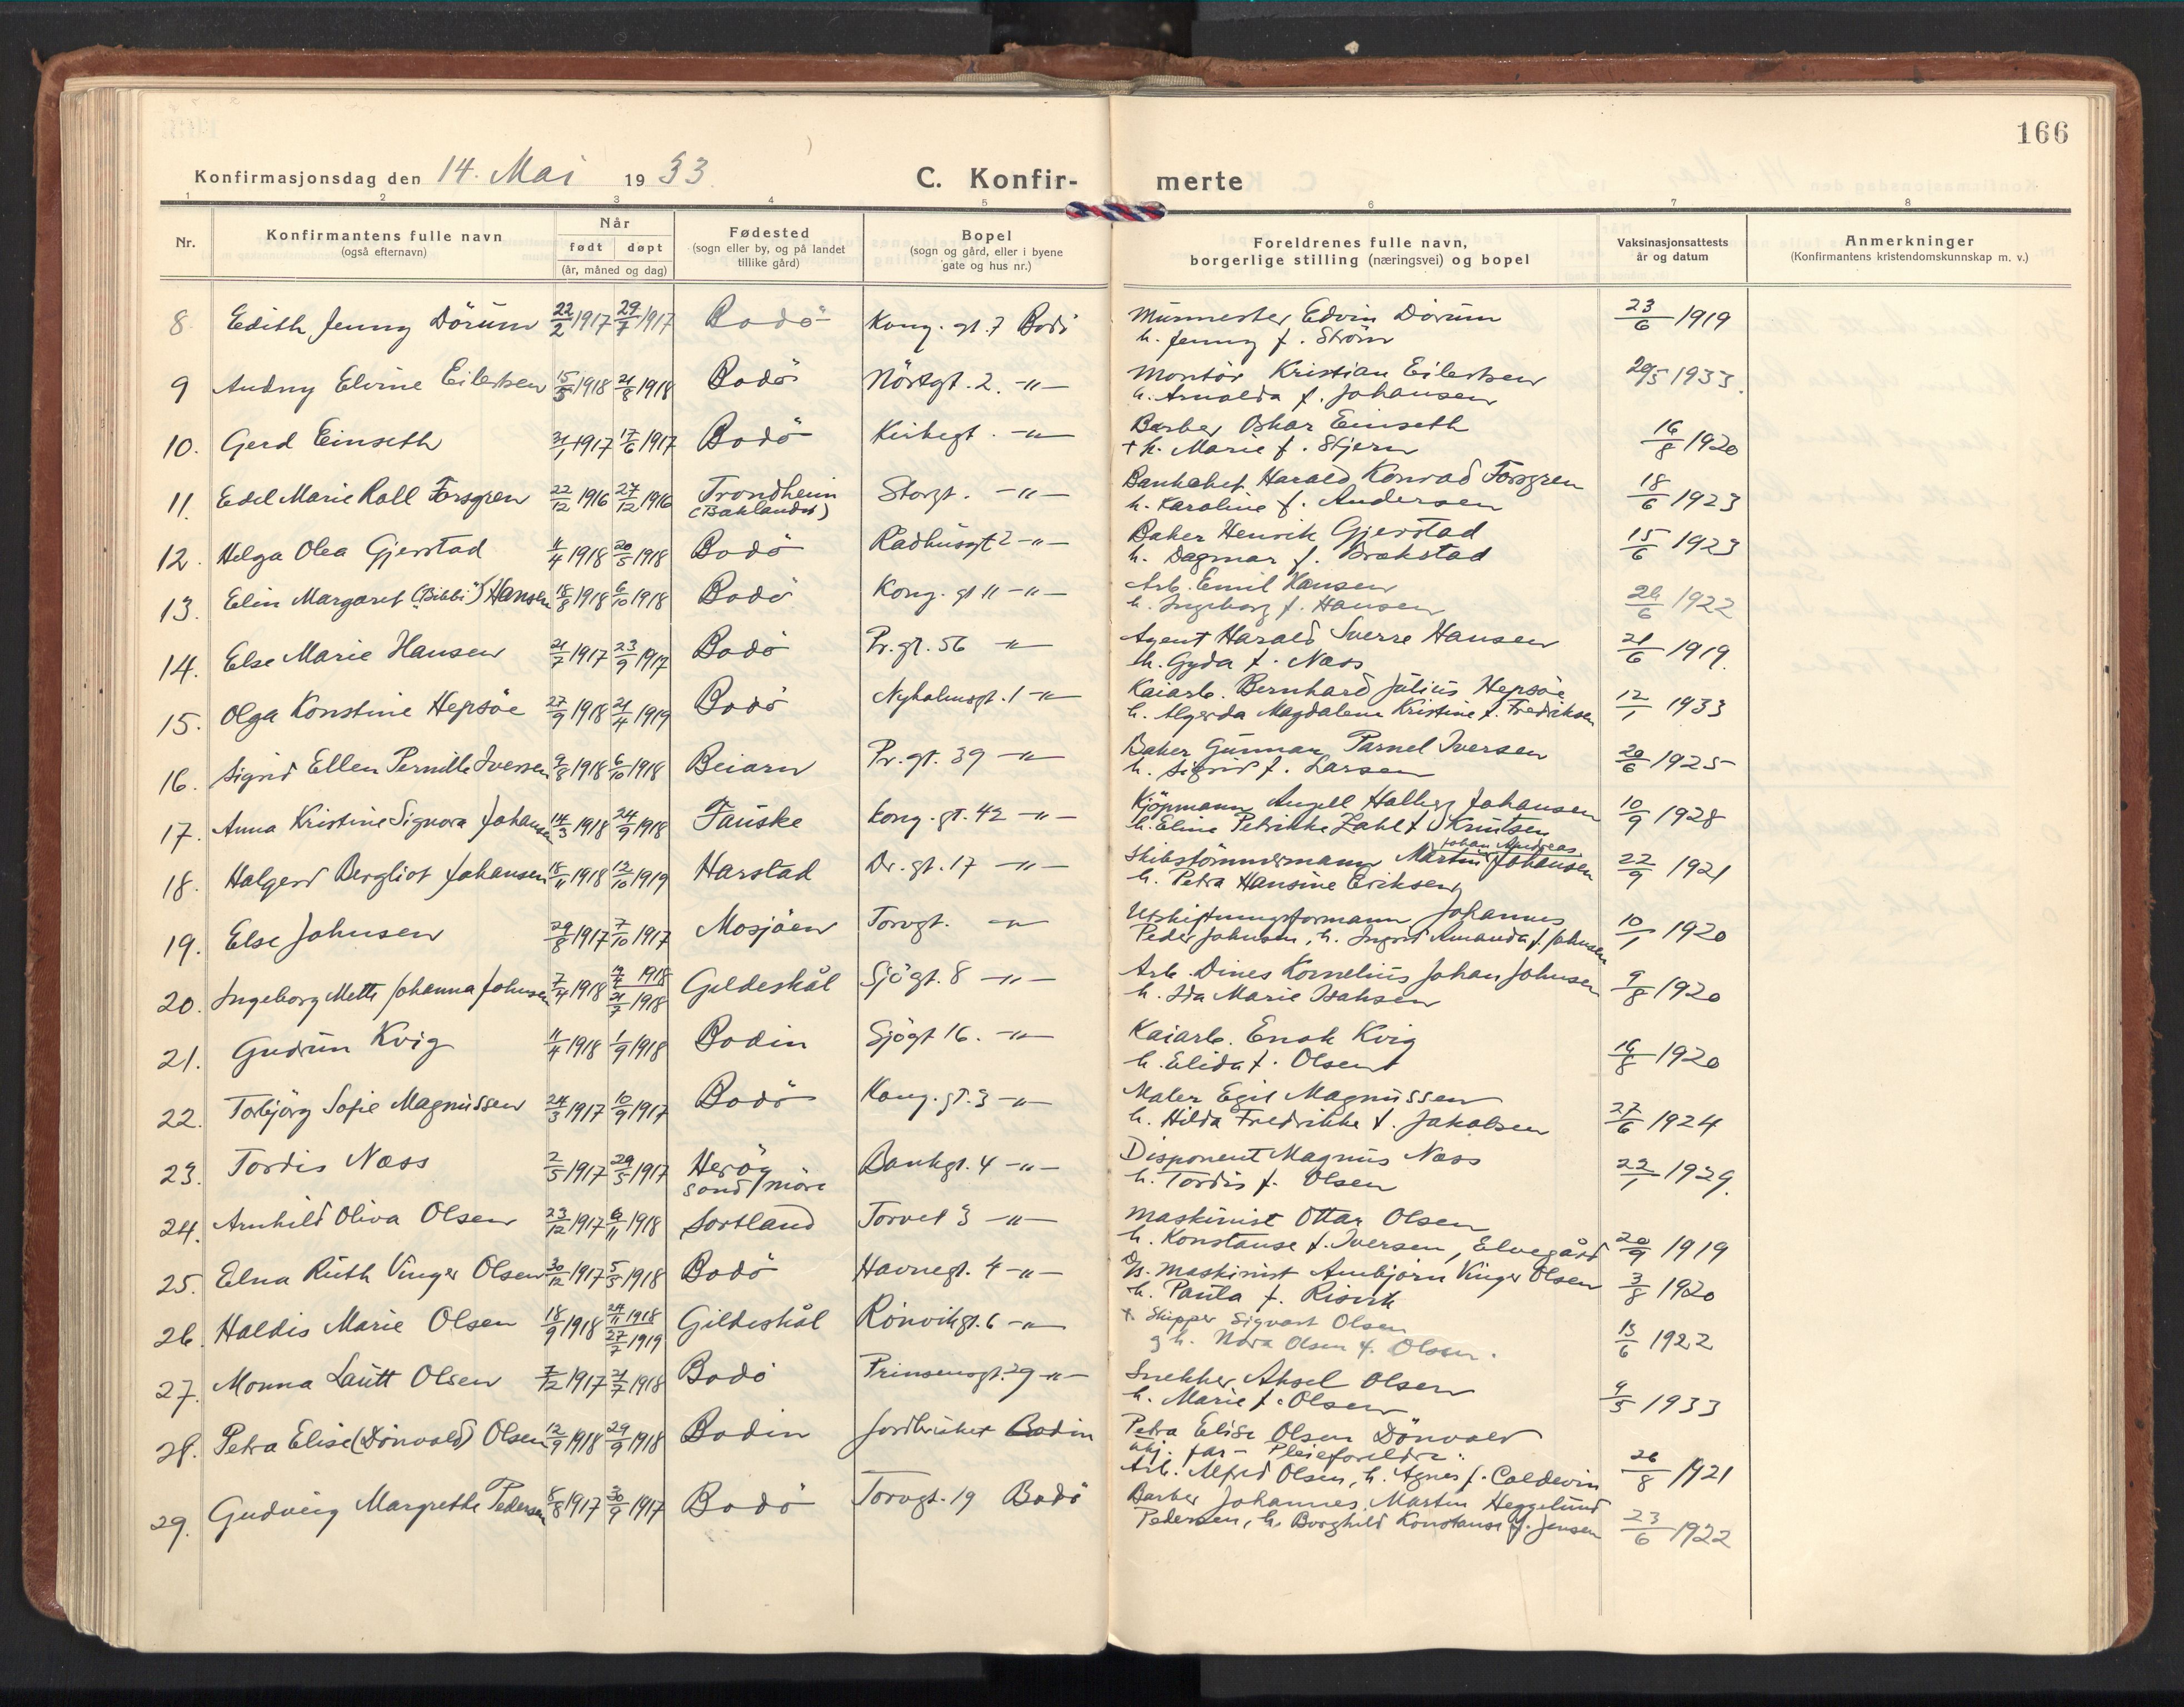 166
Konfirmasjonsdag den 14. Mai 1933. C. Konfir- merte
1 2 3 4 5 6 7 8
Nr. Konfirmantens fulle navn (også efternavn) Når født døpt (år, måned og dag) Fødested (sogn eller by, og på landet tillike gård) Bopel (sogn og gård, eller i byene gate og hus nr.) Foreldrenes fulle navn, borgerlige stilling (næringsvei) og bopel Vaksinasjonsattests år og datum Anmerkninger (Konfirmantens kristendomskunnskap m. v.)
8 Edith Jenny Dörum 22/2 1917 29/7 1917 Bodö Kong. gt. 7 Bodö Murmester Edvin Dörum
h. Jenny f. Ström 23/6 1919
9 Audny Elvine Eilertsen 15/5 1918 21/8 1918 Bodö 2. -"- Montör Kristian Eilertsen
h. Arnolda f. Johansen 29/5 1933.
10. Gerd Einseth 21/1 1917 17/6 1917 Bodö Kirkegt. -"- Barber Oskar Einseth
+ h. Marie f. Stjern 16/8 1920
11. Edel Marie Roll Forsgren 22/12 1916 27/12 1916 Trondheim
(Baklandet) Storgt. -"- Bankchef Harald Konrad Forsgren
h. Karoline f. Andersen 18/6 1923
12. Helga Olea Gjerstad 11/4 1918 20/5 1918 Bodö Rådhusgt 2 -"- Baker Henrik Gjerstad
h. Dagmar f. Brækstad 15/6 1923
13. Elin Margaret ("Bibbi") Hansen 18/8 1918 6/10 1918 Bodö Kong. gt 11 -"- Arb. Emil Hansen
h. Ingeborg f. Hansen 26/6 1922
14. Else Marie Hansen 21/7 1917 23/9 1917 Bodö Pr. gt. 56 -"- Agent Harald Sverre Hansen
h. Gyda f. Næss 21/6 1919.
15. Olga Konstine Hepsöe 27/9 1918 21/4 1919 Bodö Nyholmsgt. 1 -"- Kaiarb. Bernhard Julius Hepsöe
h. Algerda Magdalene Kristine f. Fredriksen 12/1 1933
16. Sigrid Ellen Pernille Iversen 9/8 1918 6/10 1918 Beiarn Pr. gt. 39 -"- Baker Gunnar Parnel Iversen
h. Sigrid f. Larsen 20/6 1925
17. Anna Kristine Signora Johansen 14/3 1918 24/9 1918 Fauske Kong. gt. 42 -"- Kjöpmann Angell Halberg Johansen
h. Eline Petrikke Zahl f. Knutsen 10/9 1928
18. Halgerd Bergliot Johansen 18/11 1918 12/10 1919 Harstad Dr. gt. 17 -"- Johan Andreas
Skibstömmermann Martin Johansen
h. Petra Hansine Eriksen 22/9 1921
19. Else Johnsen 29/8 1917 7/10 1917 Mosjöen Torvgt. -"- Utskiftningsformann Johannes
Peder Johnsen, h. Ingrid Amanda f. Johnsen 10/1 1920
20. Ingeborg Mette Johanna Johnsen 7/4 1918 7/4 1918
21/7 1918 Gildeskål Sjögt. 8 -"- Arb. Dines Kornelius Johan Johnsen
h. Ida Marie Isaksen 9/8 1920
21. Gudrun Kvig 11/4 1918 1/9 1918 Bodin Sjögt 16. -"- Kaiarb. Enok Kvig
h. Elida f. Olsen 16/8 1920
22. Torbjörg Sofie Magnussen 24/3 1917 10/9 1917 Bodö Kong. gt. 3 -"- Maler Egil Magnussen
h. Hilda Fredrikke f. Jakobsen 27/6 1924
23. Tordis Næss 2/5 1917 29/5 1917 Heröy
Sond/möre Bankgt. 4 -"- Disponent Magnus Næss
h. Tordis f. Olsen 22/1 1929.
24. Arnhild Oliva Olsen 23/12 1917 6/11 1918 Sortland Torvet 3 -"- Maskinist Ottar Olsen
h. Konstanse f. Iversen, Elvegård 20/9 1919
25. Edna Ruth Vinger Olsen 30/12 1917 5/5 1918 Bodö Havnegt. 4 -"- Maskinist Arnbjörn Vinger Olsen
h. Paula f. Risvik 3/8 1920
26 Haldis Marie Olsen 18/9 1918 24/11 1918
27/7 1919 Gildeskål Rönvikgt. 6 -"- + Skipper Sigvart Olsen
g h. Nora Olsen f. Olsen. 15/6 1922
27. Monna Lautt Olsen 7/12 1917 21/7 1918 Bodö Prinsensgt. 29 -"- Snekker Aksel Olsen
h. Marie f. Olsen 9/5 1933
28. Petra Elise (Dönvold) Olsen 12/9 1918 29/9 1918 Bodin Jordbruker Bodin Petra Elise Olsen Dönvold
ukj. far - Pleieforeldre:
Arb. Alfred Olsen, h. Agnes f. Coldevin 26/8 1921
29. Gudveig Margrethe Pedersen 8/8 1917 30/9 1917 Bodö Torvgt. 19 Bodö Barber Johannes Martin Heggelund
Pedersen, h. Borghild Konstanse f. Jensen 23/6 1922